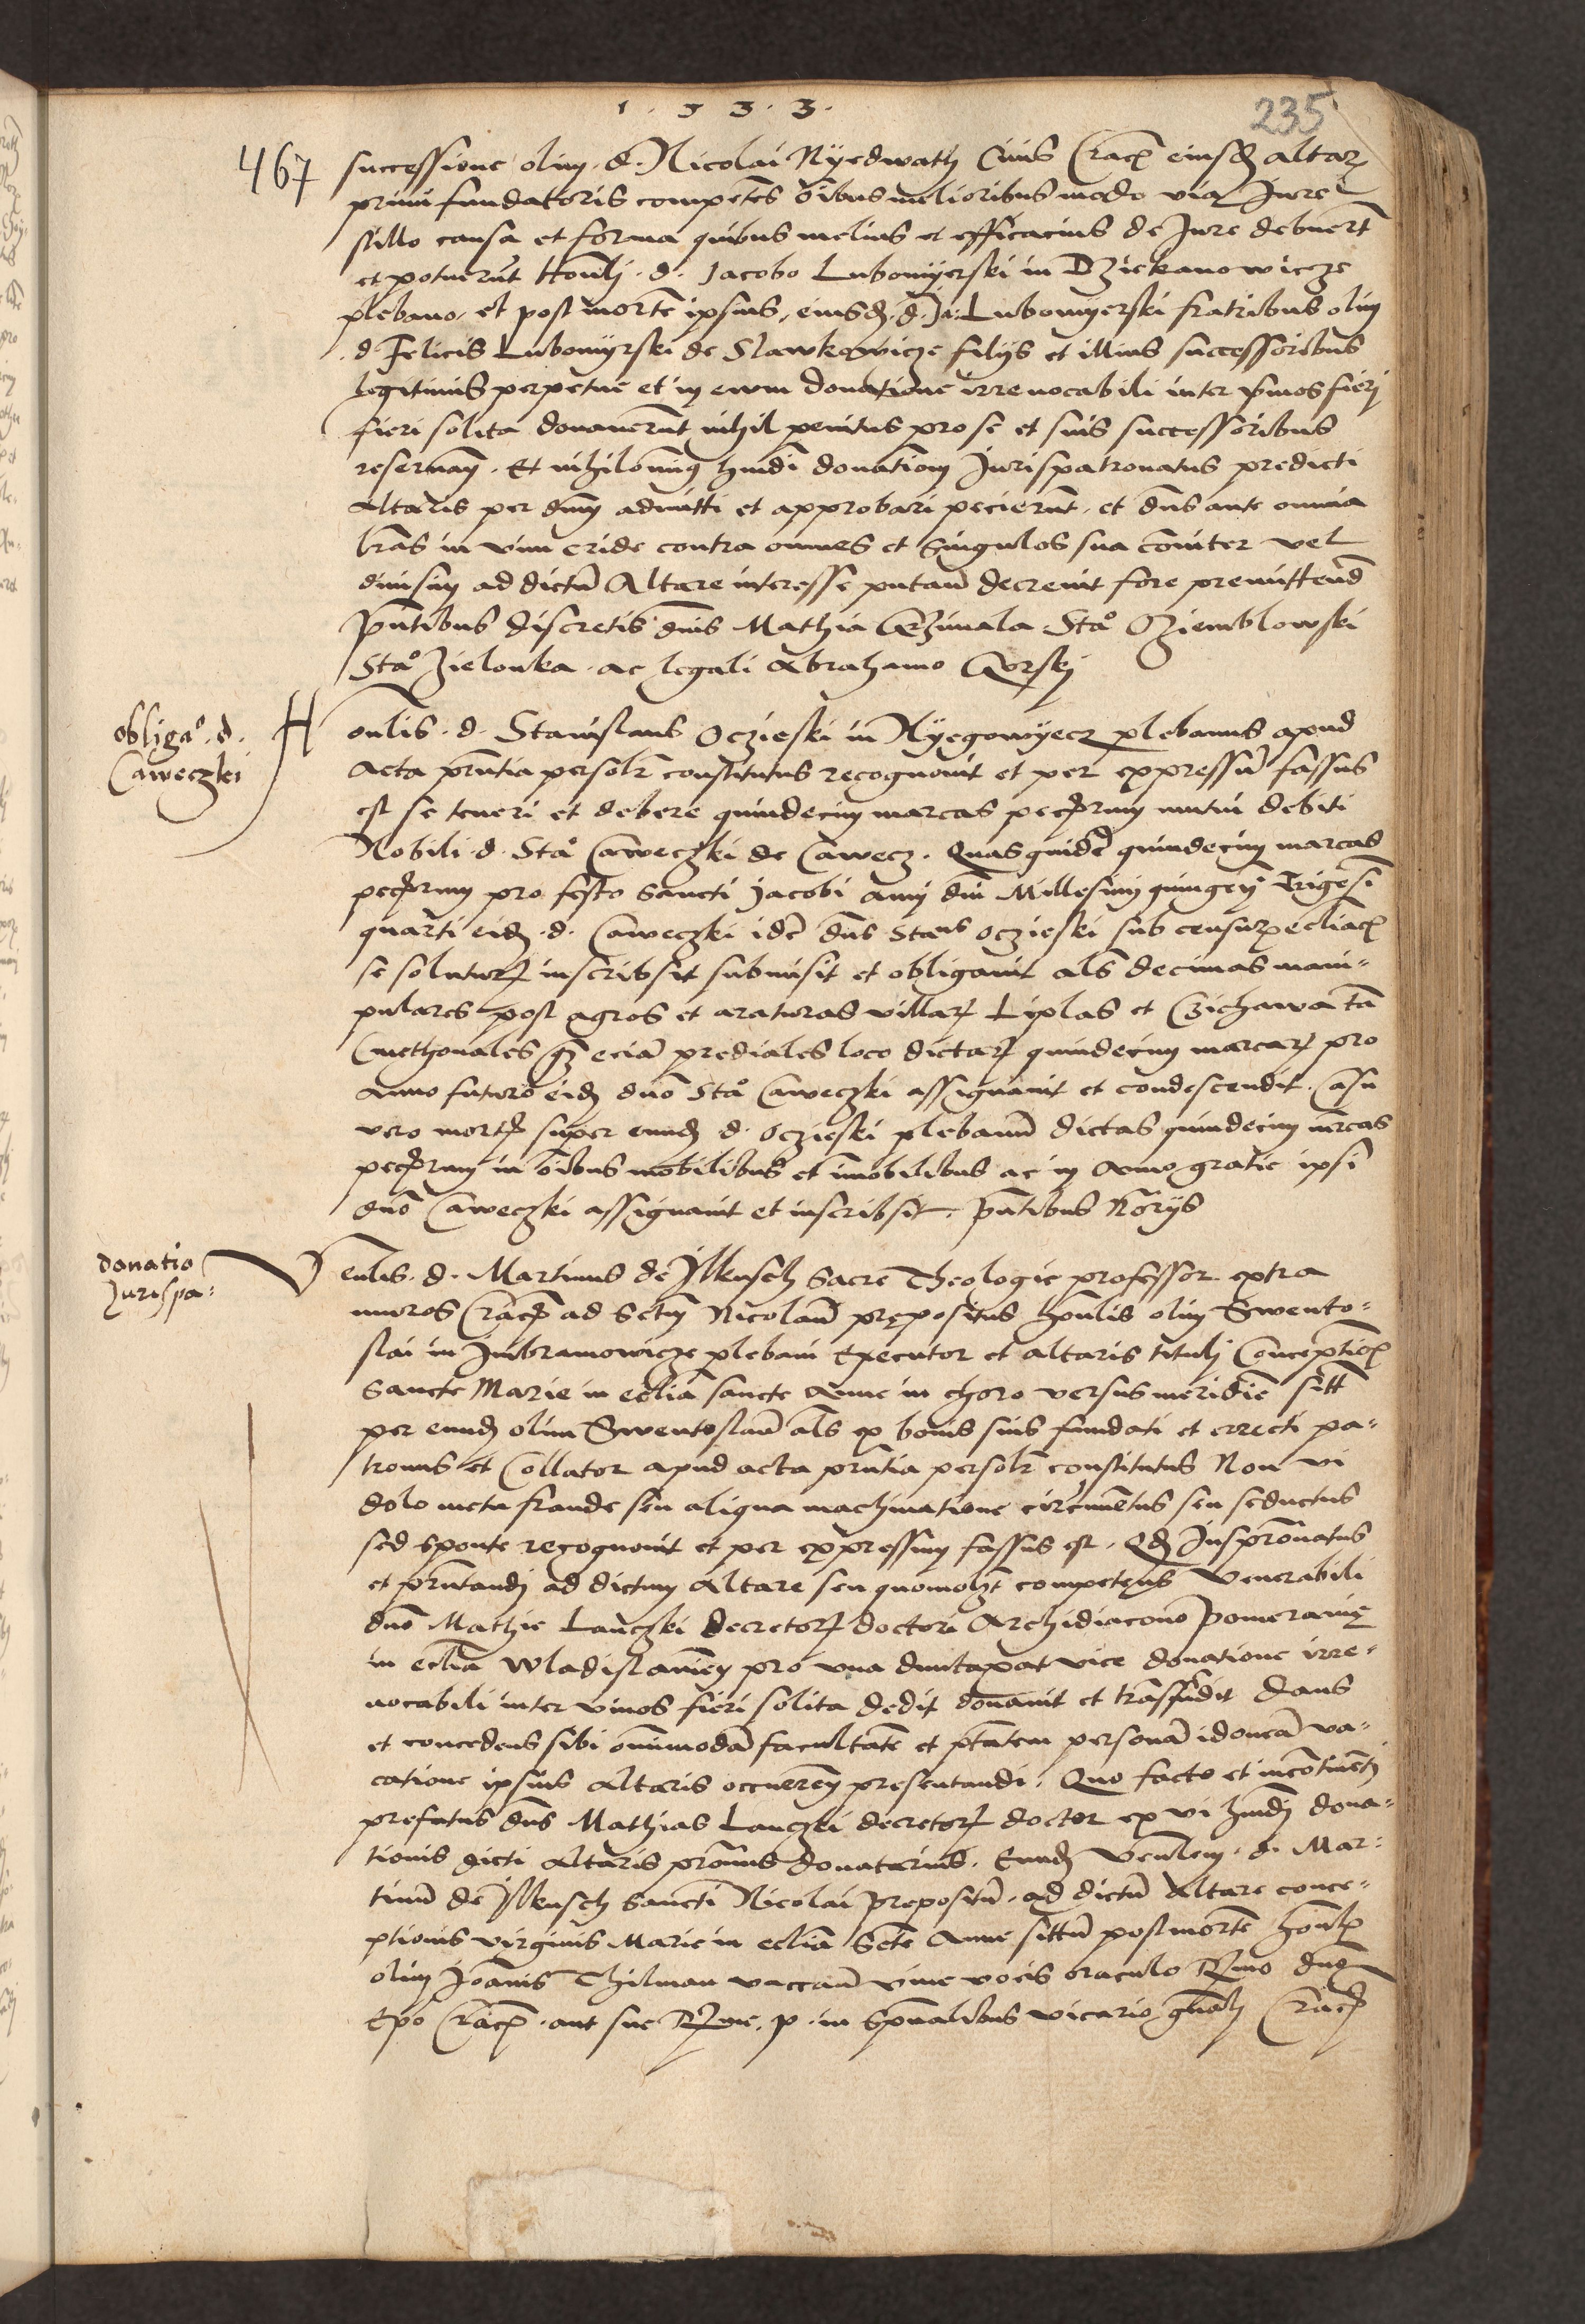 1 5 3 3
235
467
successione olim d. Nicolai Nyedwath Civis Crac̄ eiusd̄ altar̄
primi fundatoris competēs oībus melioribus modo via Jure
stillo causa et forma quibus melius et efficacius de Jure debuert̄
et potuerūt Honlj d. Jacobo Lubomyerski in Dziekanowicze
plebano et post mortē ipsius eiusd̄ d. Ja: Lubomyerski fratribus olim
d. Felicis Lubomyrski de Slawkowicze filijs et illius successoribus
legitimis perpetue et in evum donatione irrevocabili inter vivos fieri
fieri solita donaverūt nihil penitus pro se et suis successoribus
reservan̄ Et nihilomin9 hmōi donationē Jurispatronatus predicti
Altaris per dnū admitti et approbari pecierūt et dns ante omnia
lr̄as in vim cride contra omnes et singulos sua cōiter vel
divisim ad dictū Altare interesse putan̄ decrevit fore premittend̄
Pn̄tibus discretis dnis Mathia Stao Dziemblowski
Stao Zielonka ac legali Abrahamo Gorskj
obligao d.
Caweczki
Honlis d. Stanislaus Oczieski in Nyegowyecz plebanus apud
Acta pn̄tia persolr̄ constitutus recognovit et per expressū fassus
est se teneri et debere quindecim marcas pecc̄niarum mutui debiti
Nobili d. Stao Caweczki de Cawecz. Quas quidē quindecim marcas
pecc̄niarum pro festo Sancti Jacobi anni dni Millesimi quingen̄ Trigesi
quarti eid̄ d. Caweczki idē dns Stans Oczieski sub censur̄ eccliac̄
se soluturū inscribsit submisit et obligavit als decimas mani-
pulares post agros et araturas villar̄ Liplas et Czichawa tā
Cmethonales q̄ eciā prediales loco dictar̄ quindecim marcar̄ pro
Anno futuro eid̄ dno Stao Caweczki assignavit et condescendit. Casu
vero mortis super eund̄ d. Oczieski plebanū dictas quindecim mrcas
pecc̄niarum in oībus mobilibus et imobilibus ac in Anno gratie ipsi
dno Caweczki assignavit et inscribsit. Pn̄tibus Norijs
donatio
Jurispa:
Venlis d. Martinus de Ilkusch Sacre Theologie professor extra
muros Crac̄ ad Sctm̄ Nicolaū prepositus honlis olim Swento-
slai in Imbramowicze plebani Executor et altaris titulj Conception̄
Sancte Marie in ecclia sancte Anne in choro versus meridiē sitt̄
per eund̄ olim Swentoslaū als ex bonis suis fundati et errecti pa-
tronus et Collator apud acta pn̄tia persolr̄ constitutus Non vi
dolo metu fraude seu aliqua machinatione circumvētus seu seductus
sed sponte recognovit et per expressum fassus est Qd̄ Juspronatus
et pn̄tandj ad dictum Altare seu quomolz̄ competens Venerabili
dno Mathie Lanczki decretor̄ doctori Archidiacono Pomeranie
in ecclia Wladislavien̄ pro una dumtaxat vice donatione irre-
vocabili inter vivos fieri solita dedit donavit et trasfudit Dans
et concedens sibi omnimodā facultatē et pt̄atem personā idoneā va-
catione ipsius Altaris occurren̄ presentandi. Quo facto et incōtinenti
prefatus dns Mathias Lanczki decretor̄ doctor ex vi hmōi dona-
tionis dicti Altaris pronus donatarius. Eund̄ Venlem d. Mar-
tinū de Ilkusch Sancti Nicolai Prepositū ad dictū Altare conce-
ptionis virginis Marie in ecclia Scte Anne sittū post mortē honl̄
olim Joānis Thilman vaccan̄ vive vocis oraculo Rmo dno
Epo Crac̄ aut sue Rme p. in Spualibus vicario gnalj Crac̄